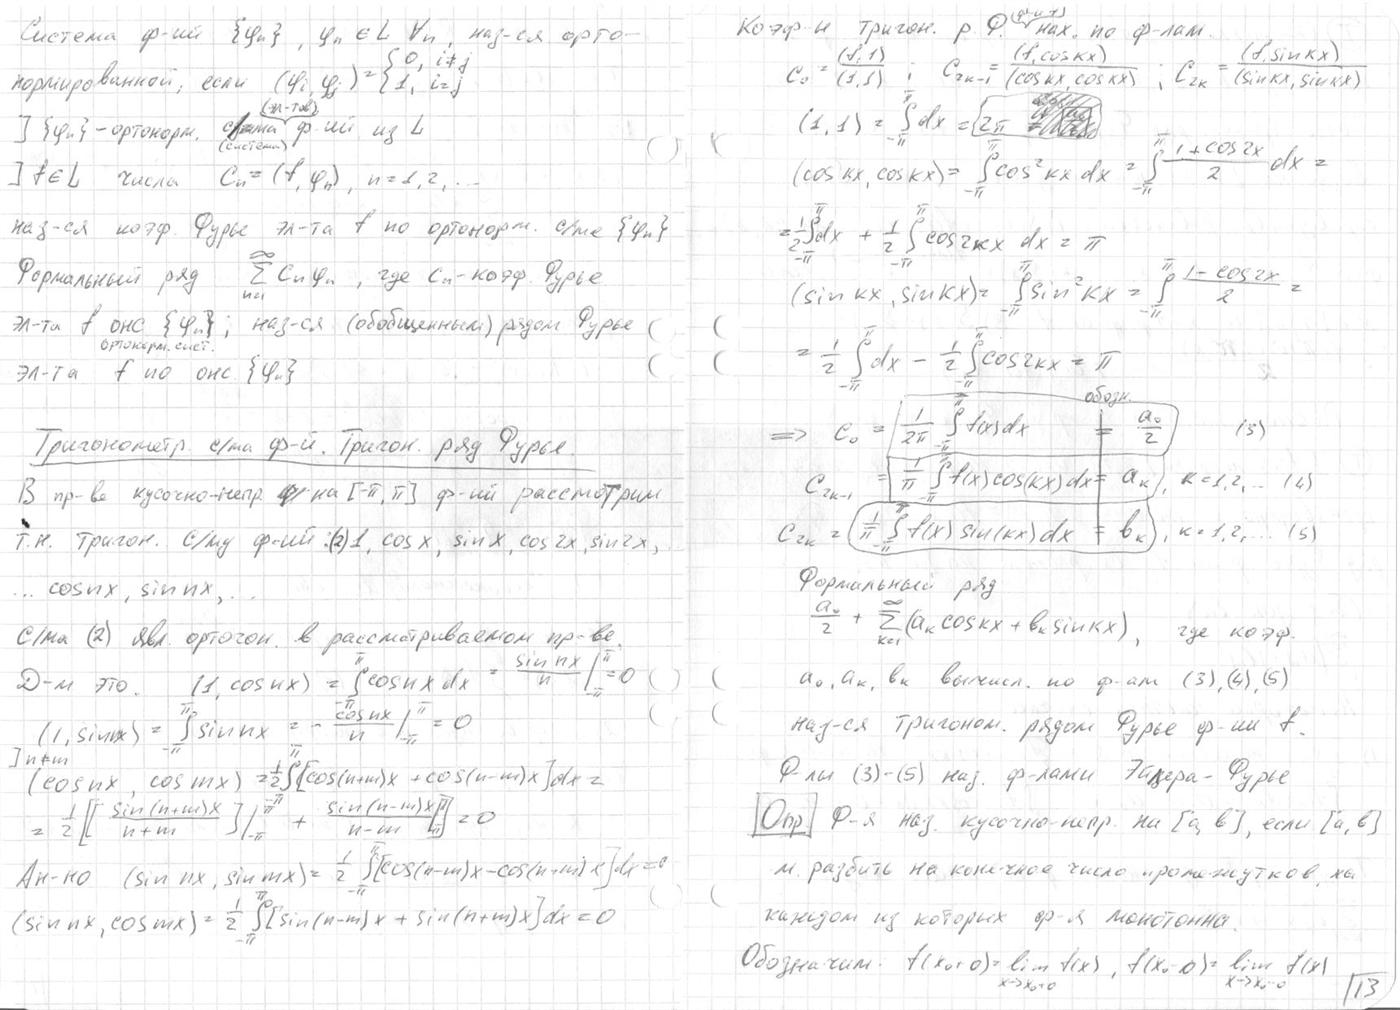 Система ф-ий {φₙ}, φₙ ∈ L ∀n, наз-ся орто-
нормированной, если (φᵢ, φⱼ) = { 0, i≠j
1, i=j
(эл-тов)
] {φₙ} - ортонорм. с/ма ф-ий из L
(система)
] f ∈ L числа Cₙ = (f, φₙ), n = 1,2, ...
наз-ся коэф. Фурье эл-та f по ортонорм. с/ме {φₙ}
Формальный ряд ∑ₙ₌₁^∞ Cₙφₙ, где Cₙ - коэф. Фурье
эл-та f онс {φₙ}; наз-ся (обобщенным) рядом Фурье
ортонорм. сист.
эл-та f по онс {φₙ}
Тригонометр. с/ма ф-й. Тригон. ряд Фурье.
В пр-ве кусочно-непр. на [-π, π] ф-ий рассмотрим
т.н. тригон. с/му ф-ий: (2) 1, cos x, sin x, cos 2x, sin 2x,
... cos nx, sin nx, ...
С/ма (2) явл. ортогон. в рассматриваемом пр-ве.
Д-м это. (1, cos nx) = ∫_{-π}^{π} cos nx dx = sin nx / n |_{-π}^{π} = 0
(1, sin nx) = ∫_{-π}^{π} sin nx = - cos nx / n |_{-π}^{π} = 0
] n≠m
(cos nx, cos mx) = 1/2 ∫_{-π}^{π} [cos(n+m)x + cos(n-m)x] dx =
= 1/2 [[ sin(n+m)x / n+m ] |_{-π}^{π} + sin(n-m)x / n-m |_{-π}^{π} ] = 0
Ан-но (sin nx, sin mx) = 1/2 ∫_{-π}^{π} [cos(n-m)x - cos(n+m)x] dx = 0
(sin nx, cos mx) = 1/2 ∫_{-π}^{π} [sin(n-m)x + sin(n+m)x] dx = 0
Коэф-ы тригон. р. Ф. (ф-и f) нах. по ф-лам.
C₀ = (f, 1) / (1, 1) ; C₂ₖ₋₁ = (f, cos kx) / (cos kx, cos kx) ; C₂ₖ = (f, sin kx) / (sin kx, sin kx)
(1, 1) = ∫_{-π}^{π} dx = 2π
(cos kx, cos kx) = ∫_{-π}^{π} cos² kx dx = ∫_{-π}^{π} 1 + cos 2x / 2 dx =
= 1/2 ∫_{-π}^{π} dx + 1/2 ∫_{-π}^{π} cos 2kx dx = π
(sin kx, sin kx) = ∫_{-π}^{π} sin² kx = ∫_{-π}^{π} 1 - cos 2x / 2 =
= 1/2 ∫_{-π}^{π} dx - 1/2 ∫_{-π}^{π} cos 2kx = π
обозн.
=> C₀ = 1/2π ∫_{-π}^{π} f(x) dx = a₀/2 (3)
C₂ₖ₋₁ = 1/π ∫_{-π}^{π} f(x) cos(kx) dx = aₖ, k = 1,2, ... (4)
C₂ₖ = 1/π ∫_{-π}^{π} f(x) sin(kx) dx = bₖ, k = 1,2, ... (5)
Формальный ряд
a₀/2 + ∑ₖ₌₁^∞ (aₖ cos kx + bₖ sin kx), где коэф.
a₀, aₖ, bₖ вычисл. по ф-ам (3), (4), (5)
наз-ся тригоном. рядом Фурье ф-ии f.
Ф-лы (3)-(5) наз. ф-лами Эйлера-Фурье
Опр Ф-я наз. кусочно-непр. на [a, b], если [a, b]
м. разбить на конечное число промежутков, на
каждом из которых ф-я монотонна.
Обозначим: f(x₀+0) = lim_{x→x₀+0} f(x), f(x₀-0) = lim_{x→x₀-0} f(x)
13